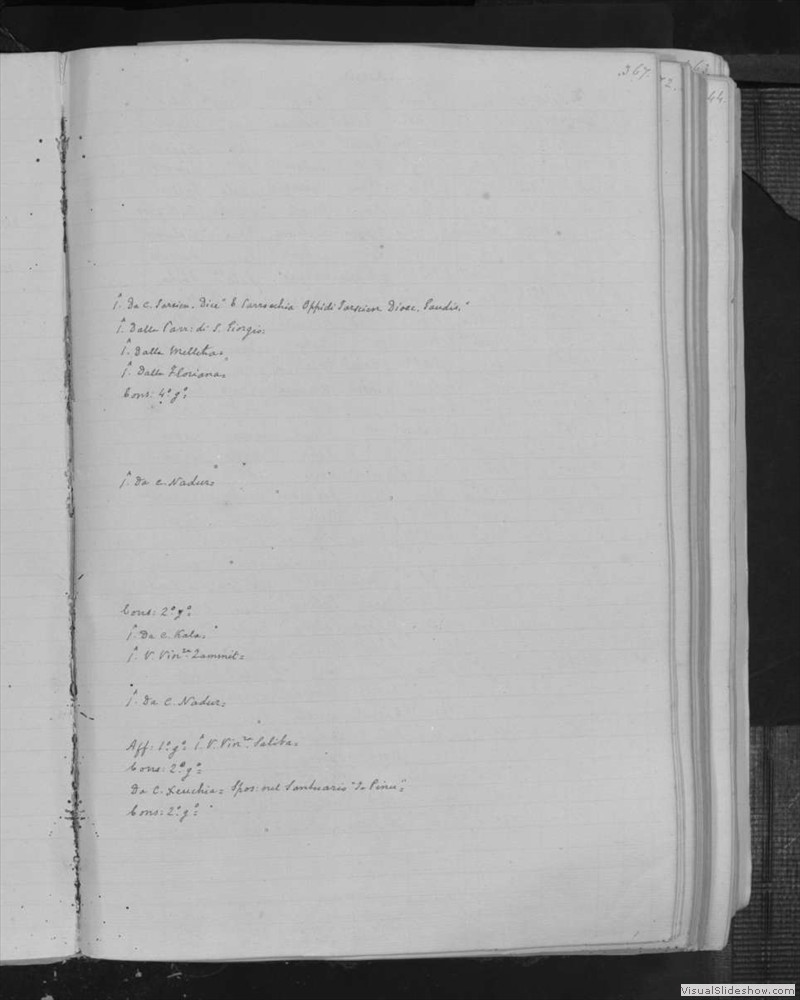 367.
72.
63.
44.
f. Da C. Dice " E Parrochia Oppidi Diœc. Gaudis."
f. Dalla Parr: di S. Giorgio.
f. Dalla Melleha=
f. Dalla Floriana=
Cons: 4° g°=
f. Da C. Nadur=
Cons: 2° g°=
f. Da C. Kala=
f. V. Vin.za Zammit=
f. Da C. Nadur=
Aff: 1° g°= f. V. Vin. Saliba=
Cons: 2° g°=
Da C. Xeuchia= Spos: nel Santuario "Ta Pinu"=
Cons: 2° g°=
VisualSlideshow.com